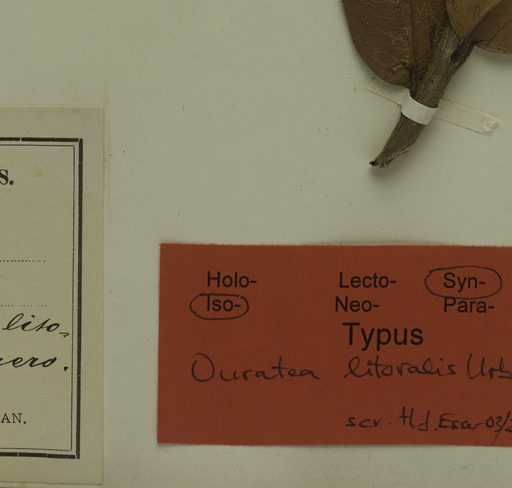 S.
lito-
nero.
AN.
Holo- Lecto- Syn-
Iso- Neo- Para-
Typus
Ouratea litoralis Urb
scr. H.J. Esser 03/2